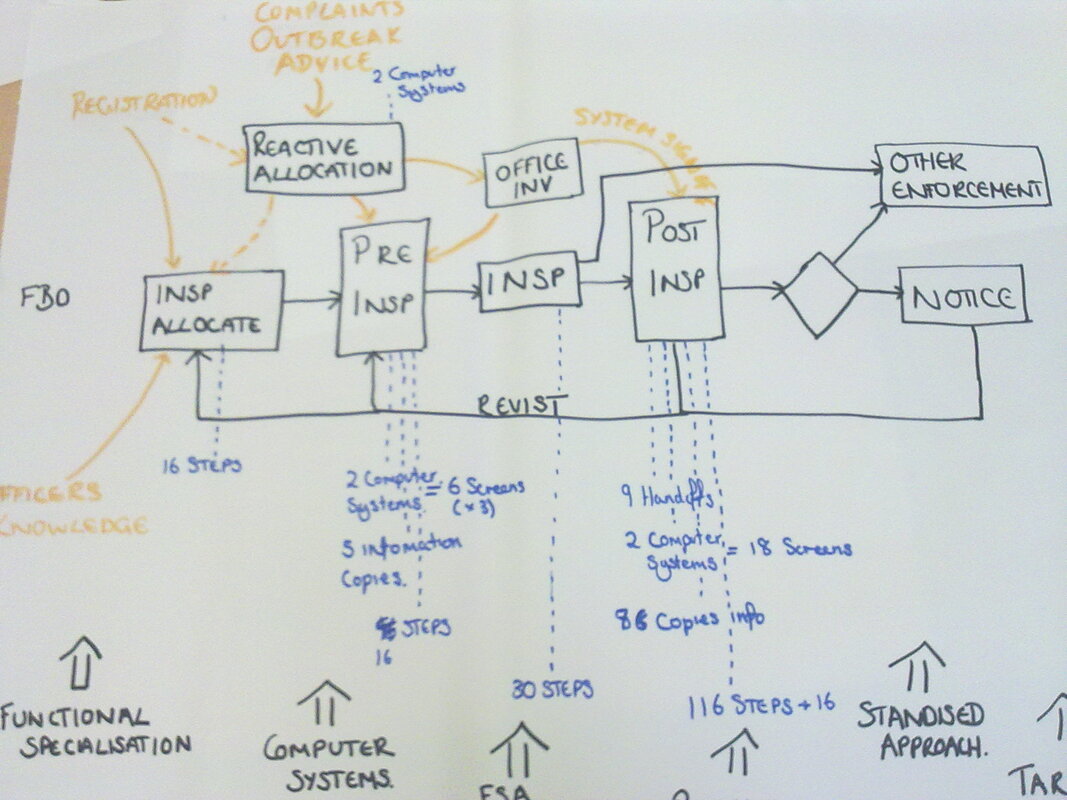 COMPLAINTS
OUTBREAK
ADVICE
2 Computer
Systems
REGISTRATION
SYSTEM
REACTIVE
ALLOCATION
OFFICE
INV
OTHER
ENFORCEMENT
PRE
INSP
POST
INSP
FBO
INSP
ALLOCATE
INSP
NOTICE
REVIST
16 STEPS
FFICERS
KNOWLEDGE
2 Computer
Systems. = 6 Screens
(x3)
5 infomation
Copies.
STEPS
16
30 STEPS
9 Handoffs
2 Computer
Systems = 18 Screens
Copies info
116 STEPS + 16
FUNCTIONAL
SPECIALISATION
COMPUTER
SYSTEMS.
FSA
STANDISED
APPROACH.
TAR